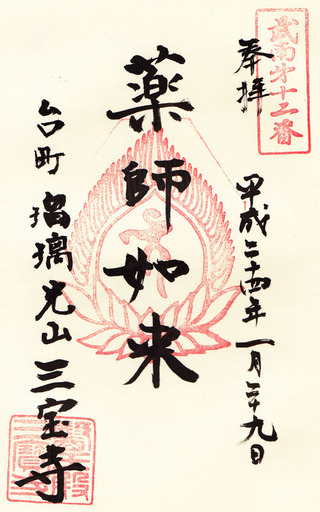 武南第十二番
奉拝
平成二十四年一月二十九日
薬師如来
台町 瑠璃光山 三宝寺